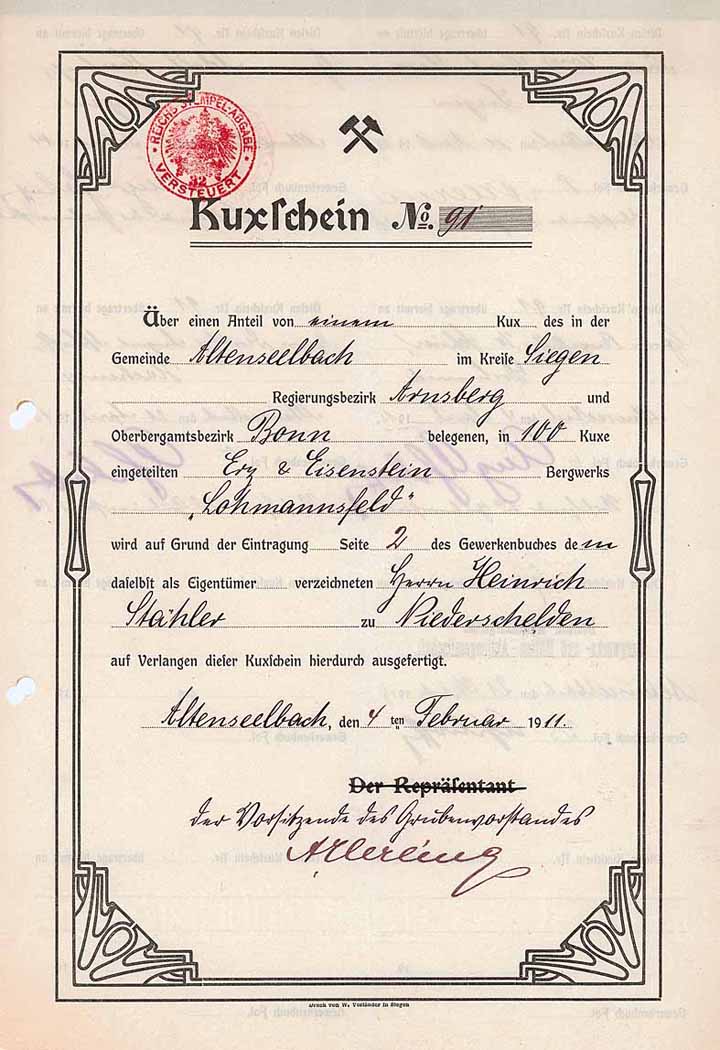 REICHS STEMPEL-ABGABE
32
VERSTEUERT
Kuxſchein No. 91
Über einen Anteil von einem Kux des in der
Gemeinde Altenseelbach im Kreiſe Siegen
Regierungsbezirk Arnsberg und
Oberbergamtsbezirk Bonn belegenen, in 100 Kuxe
eingeteilten Erz & Eisenstein Bergwerks
„Lohmannsfeld"
wird auf Grund der Eintragung Seite 2 des Gewerkenbuches de m
daſelbſt als Eigentümer verzeichneten Herrn Heinrich
Stähler zu Niederschelden
auf Verlangen dieſer Kuxſchein hierdurch ausgefertigt.
Altenseelbach, den 4 ten Februar 1911.
Der Repräſentant
der Vorsitzende des Grubenvorstandes
Druck von W. Vorländer in Siegen